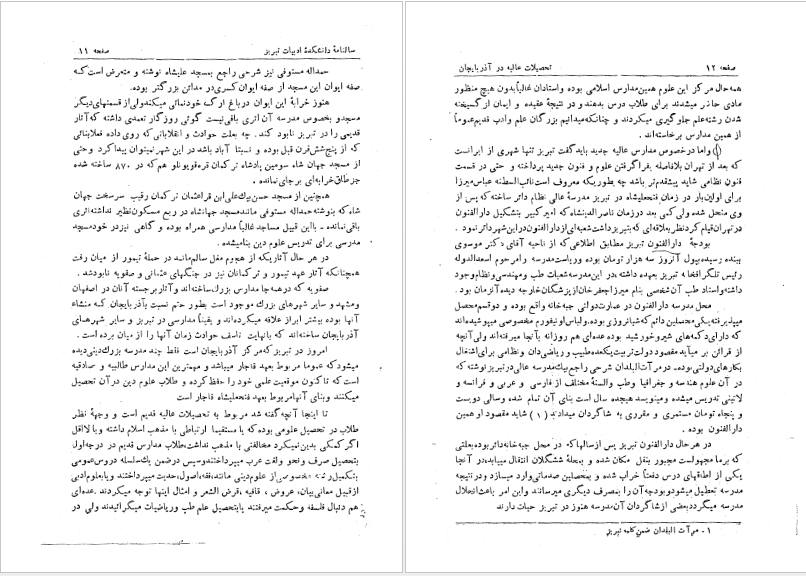 سالنامهٔ دانشکدهٔ ادبیات تبریز
صفحه ۱۱
حمداله مستوفی نیز شرحی راجع بمسجد علیشاه نوشته و متعرض است که
صفه ایوان این مسجد از صفه ایوان کسری در مدائن بزرگتر بوده.
هنوز خرابهٔ این ایوان در باغ ارک خودنمائی میکند ولی از قسمتهای دیگر
مسجد و بخصوص مدرسه آن اثری باقی نیست گوئی روزگار تعمدی داشته که آثار
قدیمی را در تبریز نابود کند. چه بعلت حوادث و انقلاباتی که روی داده فعلا بنائی
که از پنج شش قرن قبل بوده و نسبتا آباد باشد در این شهر نمیتوان پیدا کرد و حتی
از مسجد جهان شاه سومین پادشاه ترکمان قره قویونلو هم که در ۸۷۰ ساخته شده
جز طاق خرابه‌ای بر جای نمانده.
همچنین از مسجد حسن بیک علی ابن قراعثمان ترکمان رقیب سرسخت جهان
شاه که بنوشته حمداله مستوفی مانند مسجد جهانشاه در ربع مسکون نظیر نداشته اثری
باقی نمانده ـ با این قبیل مساجد غالباً مدارسی همراه بوده و گاهی نیز در خود مسجد
مدرسی برای تدریس علوم دین بنا میشده.
در هر حال آثاریکه از هجوم مغل سالم ماند در حملهٔ تیمور از میان رفت
همچنانکه آثار عهد تیمور و ترکمانان نیز در جنگهای عثمانی و صفویه نابود شد.
صفویه که در همه‌جا مدارس بزرگ ساخته‌اند و آثار برجسته آنان در اصفهان
و مشهد و سایر شهرهای بزرگ موجود است بطور حتم نسبت بآذربایجان که منشاء
آنها بوده بیشتر ابراز علاقه میکرده‌اند و یقیناً مدارسی در تبریز و سایر شهرهای
آذربایجان ساخته‌اند که بانهایت تاسف حوادث زمان آنها را از میان برده است.
امروز در تبریز که مرکز آذربایجان است فقط چند مدرسه بزرگ دینی دیده
میشود که عموما مربوط بعهد قاجار میباشد و مهمترین این مدارس طالبیه و صادقیه
است که تا کنون موقعیت علمی خود را حفظ کرده و طلاب علوم دین در آن تحصیل
میکنند و بنای آنها مربوط بعهد فتحعلیشاه قاجار است
تا اینجا آنچه گفته شد مربوط به تحصیلات عالیه قدیم است و وجههٔ نظر
طلاب در تحصیل علومی بوده که یا مستقیما ارتباطی با مذهب اسلام داشته و یا لااقل
اگر کمکی بدین نمیکرد مخالفتی با مذهب نداشت، طلاب مدارس قدیم در درجه اول
بتحصیل صرف و نحو و لغت عرب میپرداختند و سپس در ضمن یک سلسله دروس عمومی
بتکمیل رشته مخصوصی از علوم دینی مانند: فقه، اصول، حدیث میپرداختند و یا بعلوم ادبی
از قبیل معانی بیان، عروض، قافیه، قرض الشعر و امثال اینها توجه میکردند. عده‌ای
هم دنبال فلسفه و حکمت میرفتند یا بتحصیل علم طب و ریاضیات میگرائیدند ولی در
صفحه ۱۲
تحصیلات عالیه در آذربایجان
همه حال مرکز این علوم همین مدارس اسلامی بوده و استادان غالباً بدون هیچ منظور
مادی حاضر میشدند برای طلاب درس بدهند و در نتیجهٔ عقیده و ایمان از گسیخته
شدن رشته علم جلوگیری میکردند و چنانکه میدانیم بزرگان علم و ادب قدیم عموماً
از همین مدارس برخاسته‌اند.
و اما در خصوص مدارس عالیه جدید باید گفت تبریز تنها شهری از ایرانست
که بعد از تهران بلافاصله بفراگرفتن علوم و فنون جدید پرداخته و حتی در قسمت
فنون نظامی شاید پیشقدم‌تر باشد چه بطوریکه معروف است نائب السلطنه عباس میرزا
برای اولین بار در زمان فتحعلیشاه در تبریز مدرسهٔ عالی نظام دائر ساخته که پس از
وی منحل شده ولی کمی بعد در زمان ناصرالدینشاه که امیرکبیر بتشکیل دارالفنون
در تهران قیام کرد نظر بعلاقه‌ای که بتبریز داشت شعبه‌ای از دارالفنون در این شهر دائر نمود.
بودجهٔ دارالفنون تبریز مطابق اطلاعی که از ناحیه آقای دکتر موسوی
ببنده رسیده بپول آنروز سه هزار تومان بوده و ریاست مدرسه را مرحوم اسعدالدوله
رئیس تلگرافخانهٔ تبریز بعهده داشته، در این مدرسه شعبات طب و مهندسی و نظام وجود
داشته و استاد طب آن شخصی بنام میرزا جعفر خان از پزشکان خارجه دیدهٔ آنزمان بود.
محل مدرسه دارالفنون در عمارت دولتی جبه‌خانه واقع بوده و دو قسم محصل
میپذیرفته یکی محصلین دائم که شبانروزی بوده. و لباس اونیفورم مخصوصی میپوشیده‌اند
که دارای دکمه‌های شیر و خورشید بوده عده‌ای هم روزانه بآنجا میرفته‌اند ولی آنچه
از قرائن بر میآید مقصود دولت تربیت یکعده طبیب و ریاضی‌دان و نظامی برای اشغال
بکارهای دولتی بوده. در مرآت البلدان شرحی راجع بیک مدرسه عالی در تبریز نوشته که
در آن علوم هندسه و جغرافیا و طب و السنهٔ مختلف از فارسی و عربی و فرانسه و
لاتینی تدریس میشده و مینویسد هیجده سال است بنای آن تمام شده و سالی دویست
و پنجاه تومان مستمری و مقرری به شاگردان میدادند (۱) شاید مقصود او همین
دارالفنون بوده.
در هر حال دارالفنون تبریز پس از سالها که در محل جبه‌خانه دائر بوده بعللی
که بر ما مجهولست مجبور بنقل مکان شده و بمحلهٔ ششگلان انتقال مییابد، در آنجا
یکی از اطاقهای درس دفعتاً خراب شده و بمحصلین صدماتی وارد میسازد و در نتیجه
مدرسه تعطیل میشود و بودجه آن را بمصرف دیگری میرسانند و این امر باعث انحلال
مدرسه میگردد بعضی از شاگردان آن مدرسه هنوز در تبریز حیات دارند
۱ - مرآت البلدان ضمن کلمه تبریز